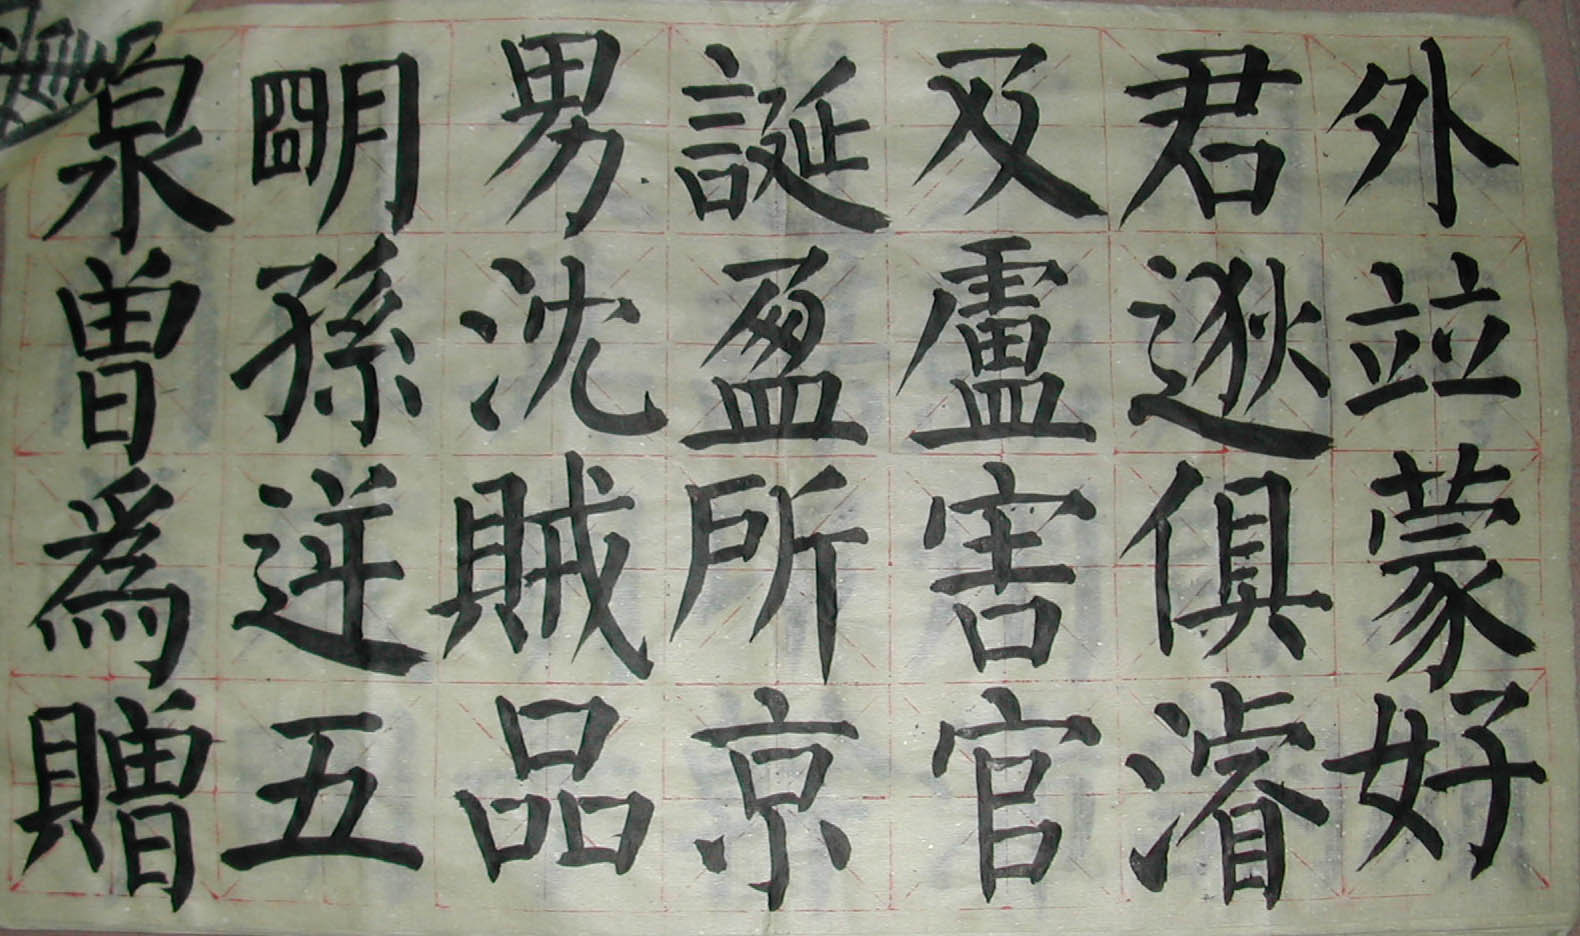 泉明男誕及君外
曾孫沈盈盧逖並
為逆賊所害俱蒙
贈五品京官濬好